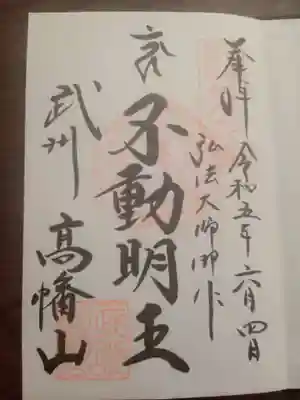 奉拝 令和五年六月四日
弘法大師御作
不動明王
武州 高幡山